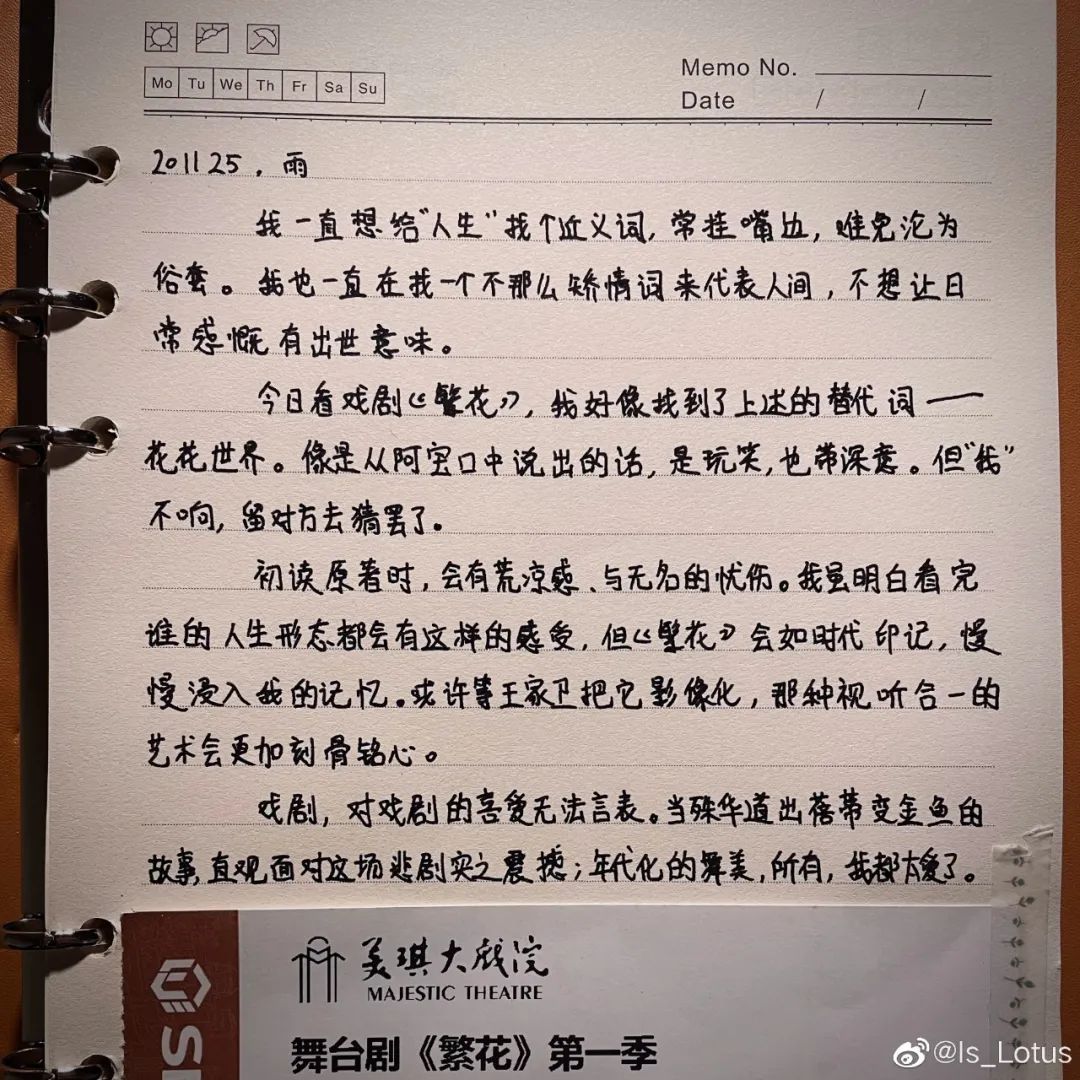 Mo Tu We Th Fr Sa Su
Memo No.
Date / /
201125，雨
我一直想给“人生”找个近义词，常挂嘴边，难免沦为
俗套。我也一直在找一个不那么矫情词来代表人间，不想让日
常感慨有出世意味。
今日看戏剧《繁花》，我好像找到了上述的替代词——
花花世界。像是从阿宝口中说出的话，是玩笑，也带深意。但“我”
不响，留对方去猜罢了。
初读原著时，会有荒凉感、与无名的忧伤。我虽明白看完
谁的人生形态都会有这样的感受，但《繁花》会如时代印记，慢
慢浸入我的记忆。或许等王家卫把它影像化，那种视听合一的
艺术会更加刻骨铭心。
戏剧，对戏剧的喜爱无法言表。当殊华道出蓓蒂变金鱼的
故事，直观面对这场悲剧实之震撼；年代化的舞美，所有，我都太爱了。
美琪大戏院
MAJESTIC THEATRE
舞台剧《繁花》第一季
@ls_Lotus